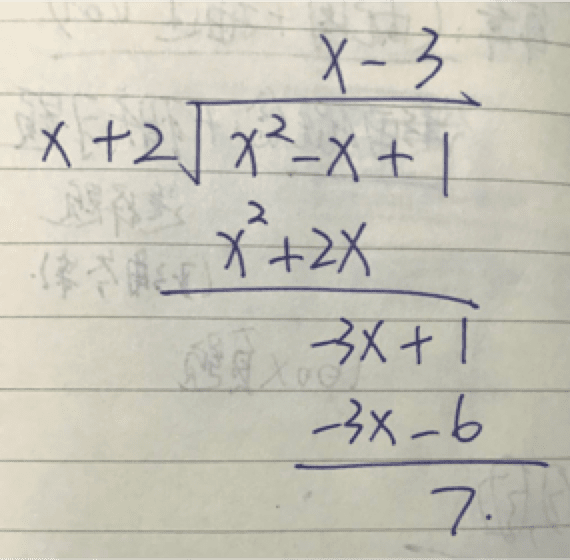 x - 3
x + 2 √ x² - x + 1
x² + 2x
-3x + 1
-3x - 6
7.